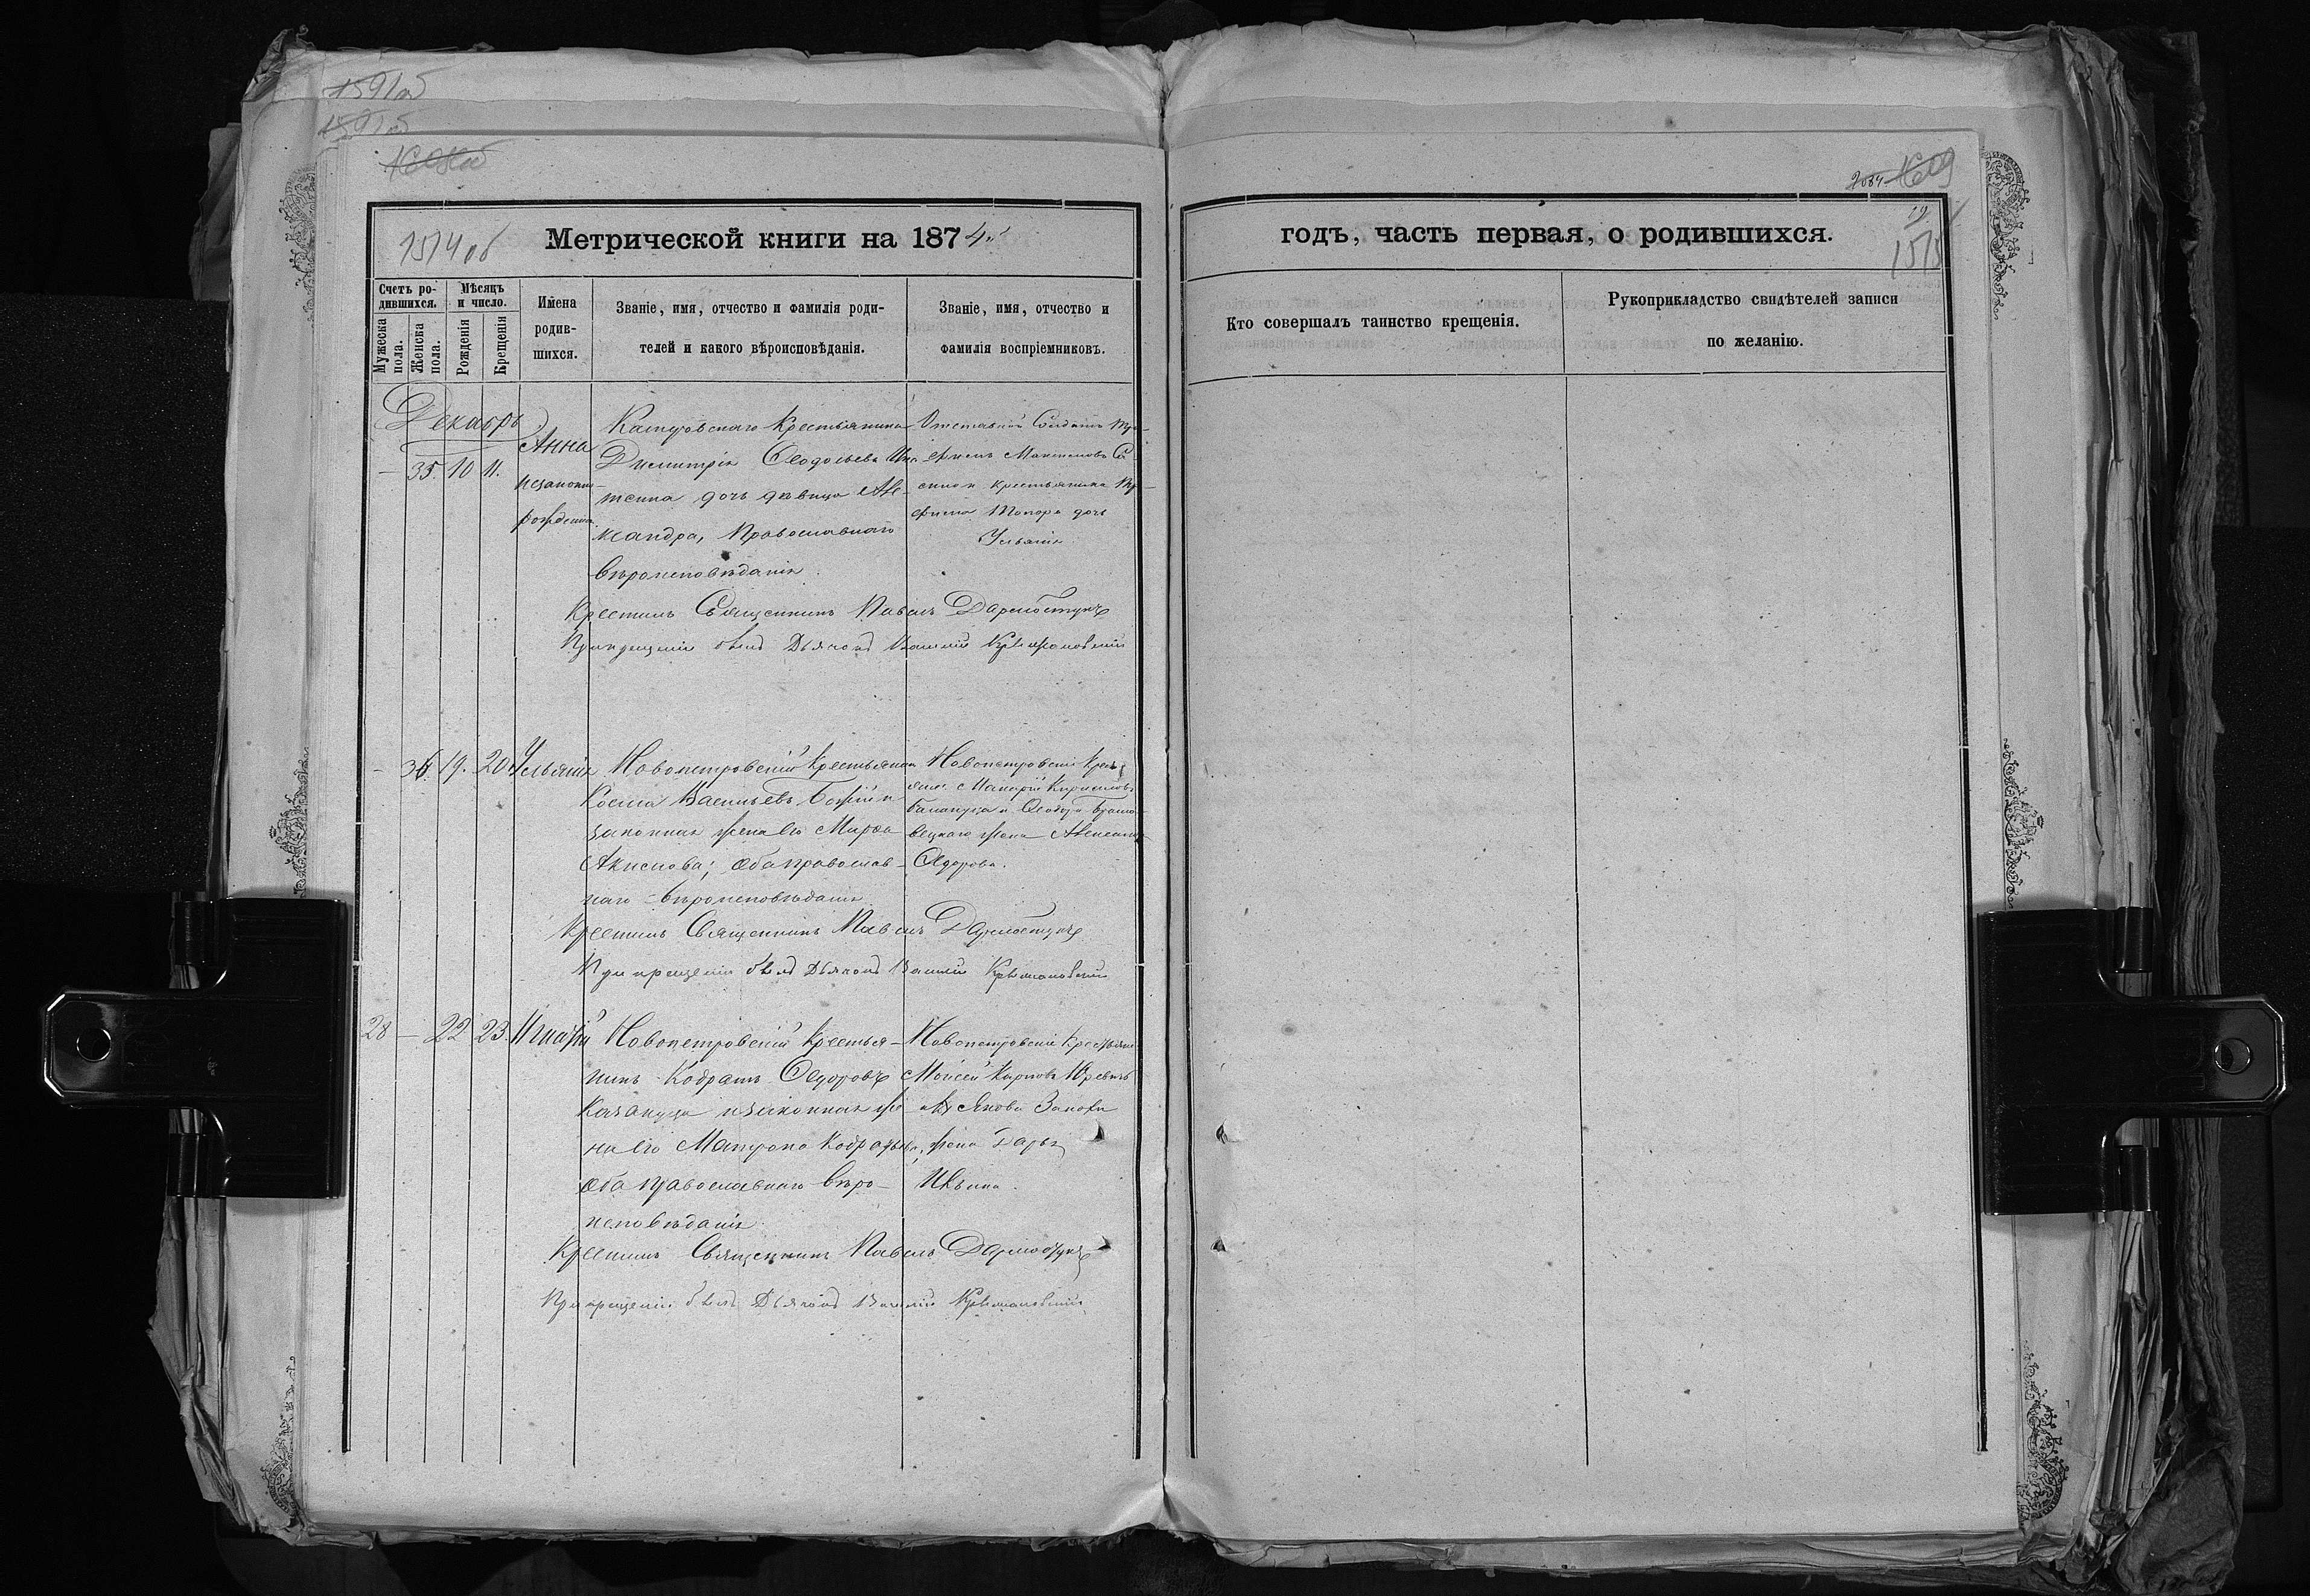 1591об
1591об
1608об
1574об
Метрической книги на 1874"
Счетъ ро-
дившихся.
Мѣсяцъ
и число.
Мужеска
пола.
Женска
пола.
Рожденія
Крещенія
Имена
родив-
шихся.
Званіе, имя, отчество и фамилія роди-
телей и какого вѣроисповѣданія.
Званіе, имя, отчество и
фамилія воспріемниковъ.
Декабрь
— 35. 10 11.
Анна
незаконно-
рожденна.
крестьянина
Димитрія
дочь девица Але-
ксандра, Православнаго
вѣроисповѣданія.
Отставной Солдатъ
Максимовъ
крестьянина
дочь
Ульянія
Крестилъ Священникъ Павелъ Дармостукъ
При крещеніи былъ Дьяконъ Василій Крыжановскій
— 36. 19. 20
Ульянія
Новопетровскій Крестьянин
Косма Васильевъ Божій и
законная жена его Марѳа
Акимова; оба православ-
наго вѣроисповѣданія.
Новопетровскій Крест
Макарій Кириловъ
жена
Ѳедорова.
Крестилъ Священникъ Павелъ Дармостукъ
При крещеніи былъ Дьяконъ Василій Крыжановскій
28 — 22 23.
Игнатій
Новопетровскій Крестья-
нинъ Кодратъ Ѳедоровъ
и законная же-
на его Матрона Кодратьева,
оба православнаго вѣро-
исповѣданія.
Новопетровскій Крестьяни
Моисей Карповъ
Якова
жена Дарья
Ильина.
Крестилъ Священникъ Павелъ Дармостукъ
При крещеніи былъ Дьяконъ Василій Крыжановскій
2084 1609
19
1575
годъ, часть первая, о родившихся.
Кто совершалъ таинство крещенія.
Рукоприкладство свидѣтелей записи
по желанію.